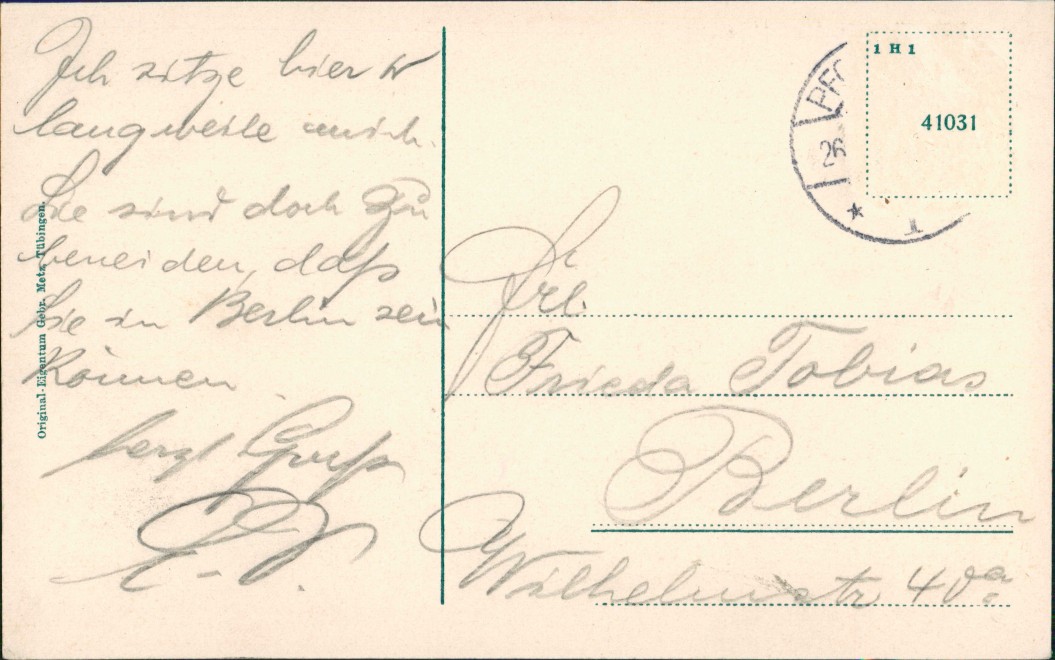 Ich sitze hier u
langweile mich.
Sie sind doch zu
beneiden, daß
Sie in Berlin sein
können
herzl Gruß
Original-Eigentum Gebr. Metz, Tübingen.
1 H 1
41031
26
* 1
Frl.
Frieda Tobias
Berlin
Wilhelmstr